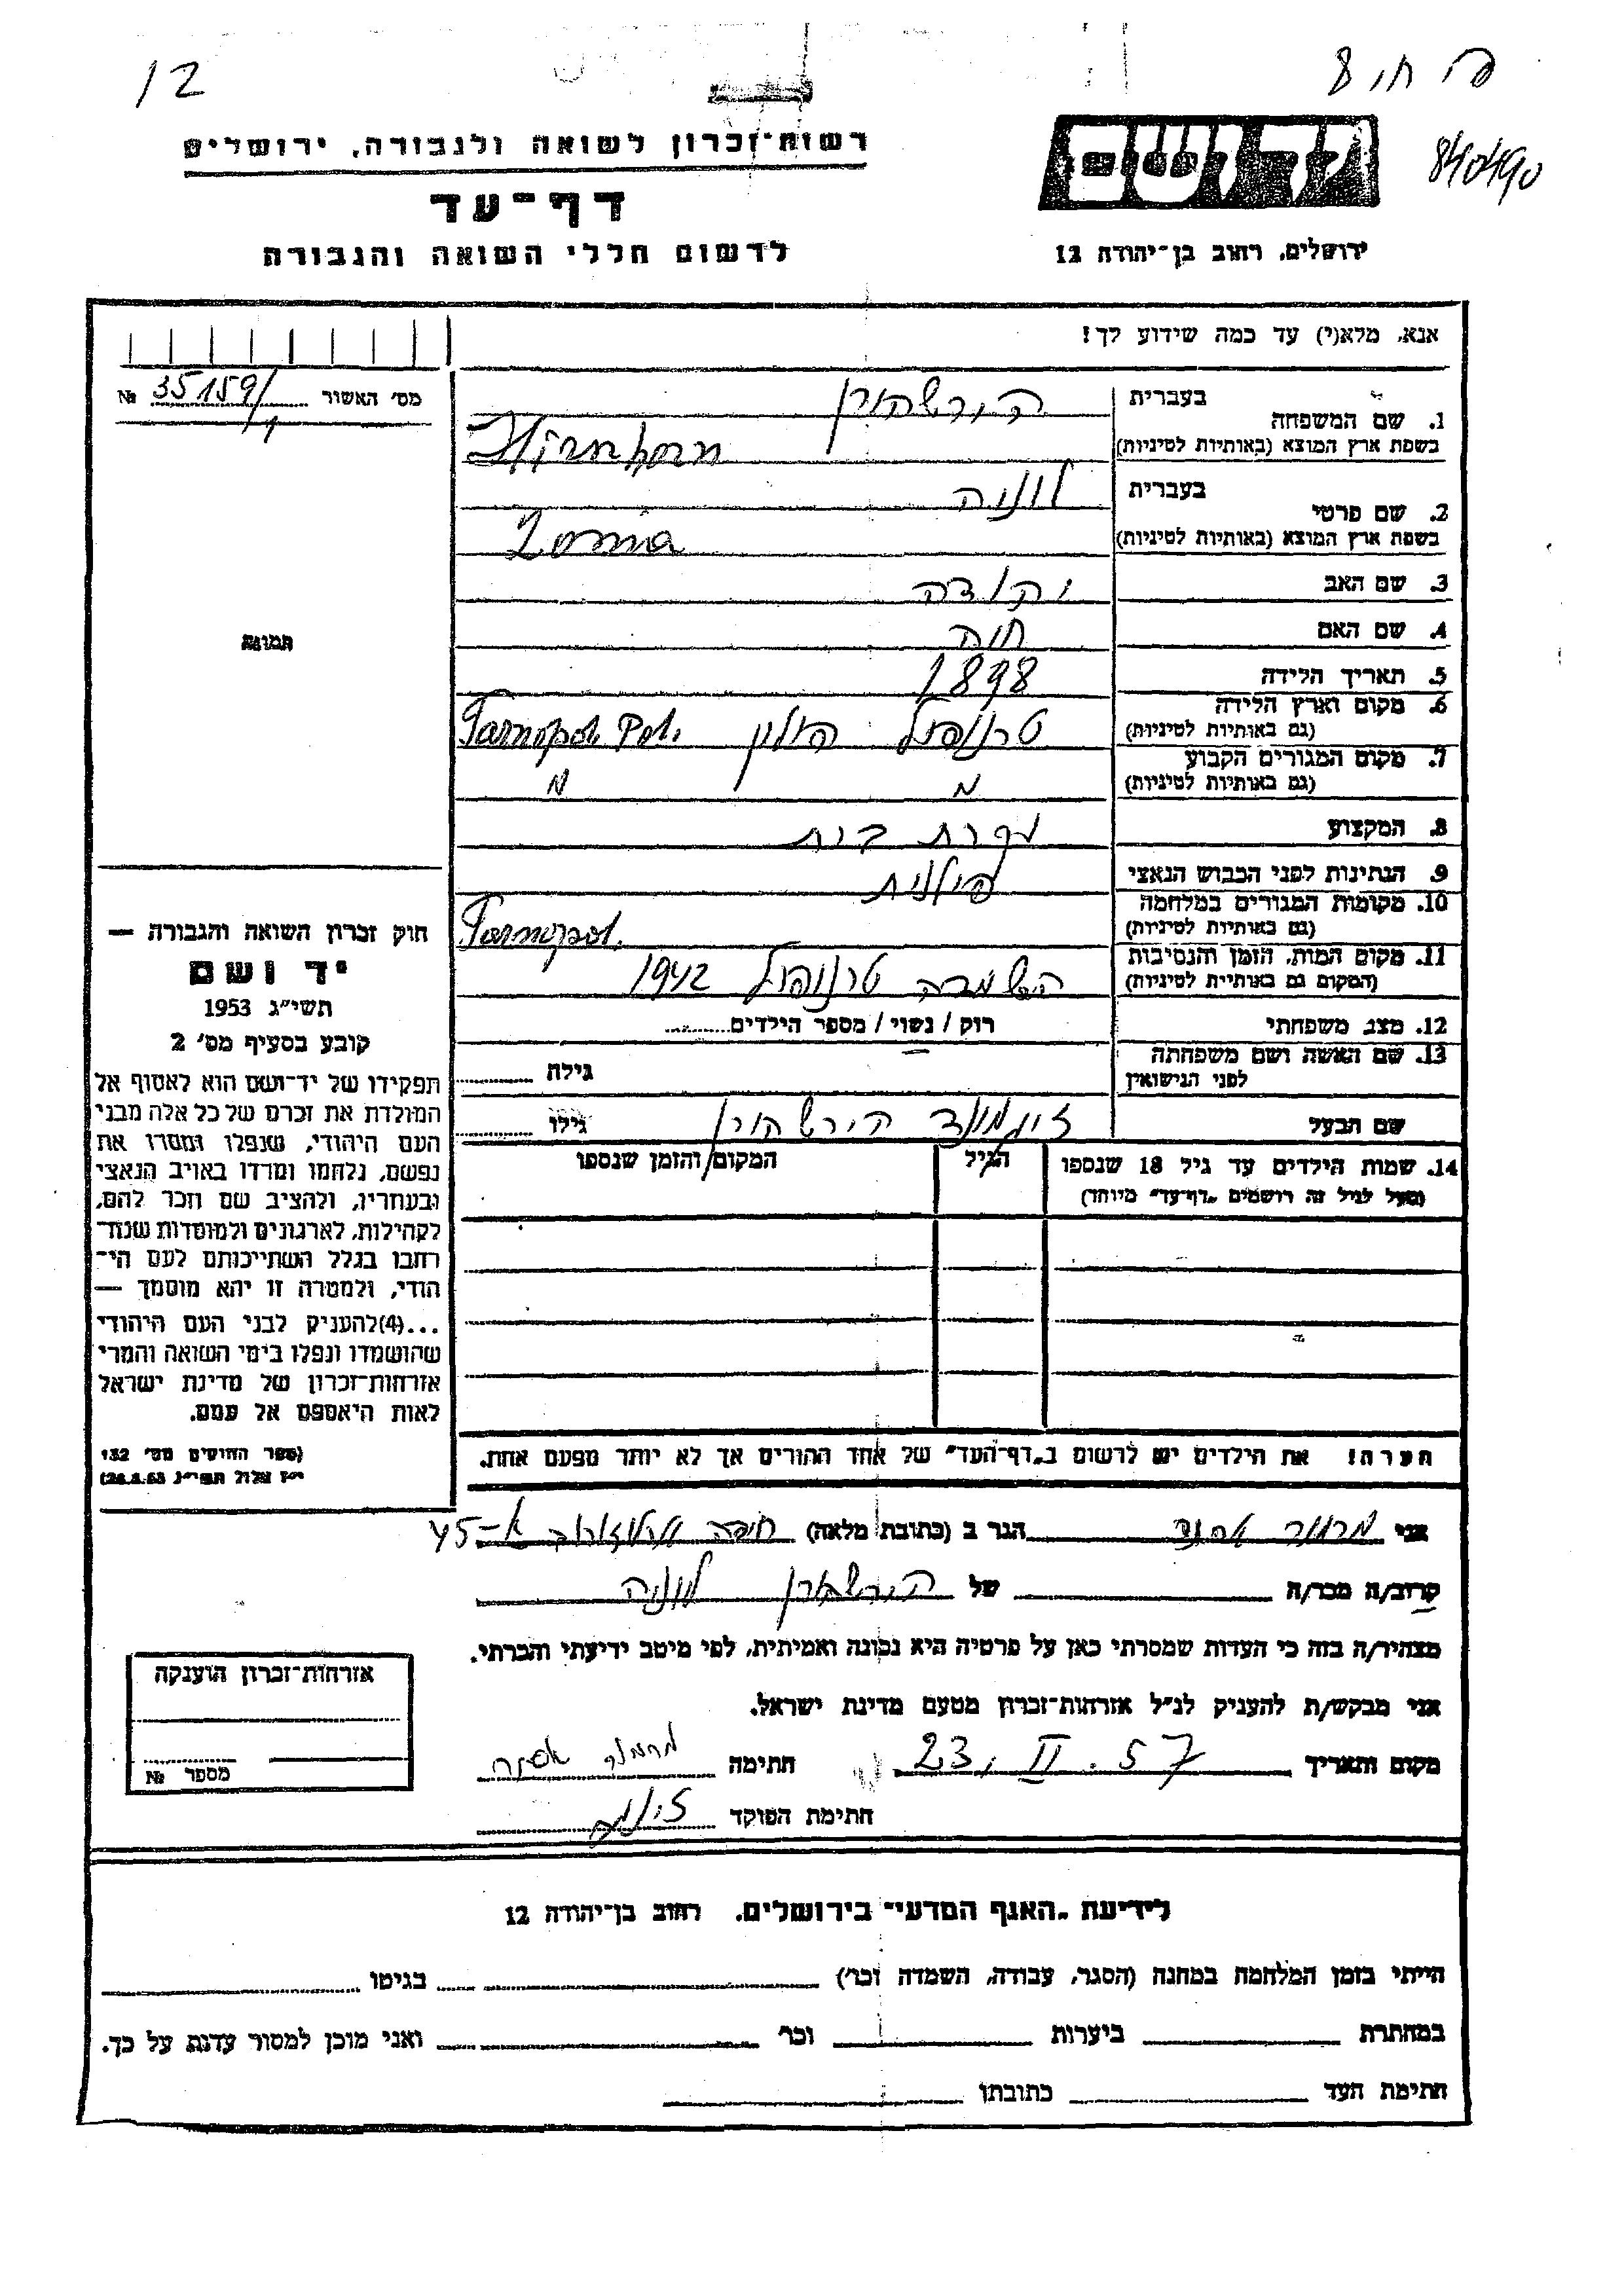 12
840490
רשות־זכרון לשואה ולגבורה, ירושלים
דף־עד
לרשום חללי השואה והגבורה
יד ושם
ירושלים, רחוב בן־יהודה 12
אנא, מלא(י) עד כמה שידוע לך!
מס׳ האשור 35159/ №
1. שם המשפחה
בעברית הירשהורן
בשפת ארץ המוצא (באותיות לטיניות) Hirnhorn
2. שם פרטי
בעברית לוניה
בשפת ארץ המוצא (באותיות לטיניות) Lonia
3. שם האב יהודה
4. שם האם חוה
5. תאריך הלידה 1898
6. מקום וארץ הלידה טרנופול פולין Tarnopol. Pol.
(גם באותיות לטיניות)
7. מקום המגורים הקבוע
(גם באותיות לטיניות) " "
8. המקצוע עקרת בית
9. הנתינות לפני הכבוש הנאצי פולנית
10. מקומות המגורים במלחמה Tarnopol.
(גם באותיות לטיניות)
11. מקום המות, הזמן והנסיבות טרנופול 1942
(המקום גם באותיות לטיניות)
12. מצב משפחתי רוק / נשוי / מספר הילדים
13. שם האשה ושם משפחתה
לפני הנישואין גילה
שם הבעל זיגמונד הירשהורן גילו
14. שמות הילדים עד גיל 18 שנספו הגיל המקום והזמן שנספו
(מעל לגיל זה רושמים „דף־עד" מיוחד)
הערה! את הילדים יש לרשום ב„דף־העד" של אחד ההורים אך לא יותר מפעם אחת.
תמונה
חוק זכרון השואה והגבורה —
יד ושם
תשי״ג 1953
קובע בסעיף מס׳ 2
תפקידו של יד־ושם הוא לאסוף אל
המולדת את זכרם של כל אלה מבני
העם היהודי, שנפלו ומסרו את
נפשם, נלחמו ומרדו באויב הנאצי
ובעוזריו, ולהציב שם וזכר להם,
לקהילות, לארגונים ולמוסדות שנח־
רבו בגלל השתייכותם לעם הי־
הודי, ולמטרה זו יהא מוסמך —
...(4)להעניק לבני העם היהודי
שהושמדו ונפלו בימי השואה והמרי
אזרחות־זכרון של מדינת ישראל
לאות היאספם אל עמם.
(ספר החוקים מס׳ 132
י״ז אלול תשי״ג 28.8.53)
אני הגר ב (כתובת מלאה) חיפה 45
קרוב/ה מכר/ה של הירשהורן לוניה
מצהיר/ה בזה כי העדות שמסרתי כאן על פרטיה היא נכונה ואמיתית, לפי מיטב ידיעתי והכרתי.
אני מבקש/ת להעניק לנ״ל אזרחות־זכרון מטעם מדינת ישראל.
מקום ותאריך 23, II. 57 חתימה
חתימת הפוקד
אזרחות־זכרון הוענקה
מספר №
לידיעת „האגף המדעי" בירושלים, רחוב בן־יהודה 12
הייתי בזמן המלחמה במחנה (הסגר, עבודה, השמדה וכר׳) בגיטו
במחתרת ביערות וכר׳ ואני מוכן למסור עדות על כך.
חתימת העד כתובתו